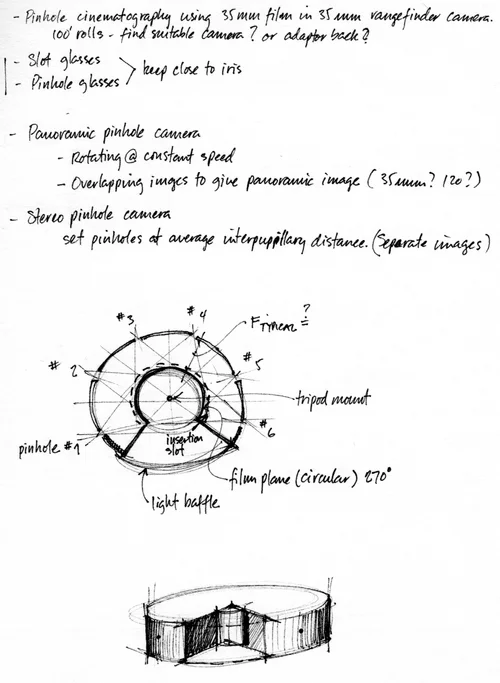 - Pinhole cinematography using 35mm film in 35mm rangefinder camera.
100' rolls - find suitable camera? or adaptor back?
- Slot glasses
- Pinhole glasses
keep close to iris
- Panoramic pinhole camera
- Rotating @ constant speed
- Overlapping images to give panoramic image (35mm? 120?)
- Stereo pinhole camera
set pinholes at average interpupillary distance. (Separate images)
?
#3
#4
#
2
#5
tripod mount
#6
pinhole #1
insertion
slot
film plane (circular) 270°
light baffle